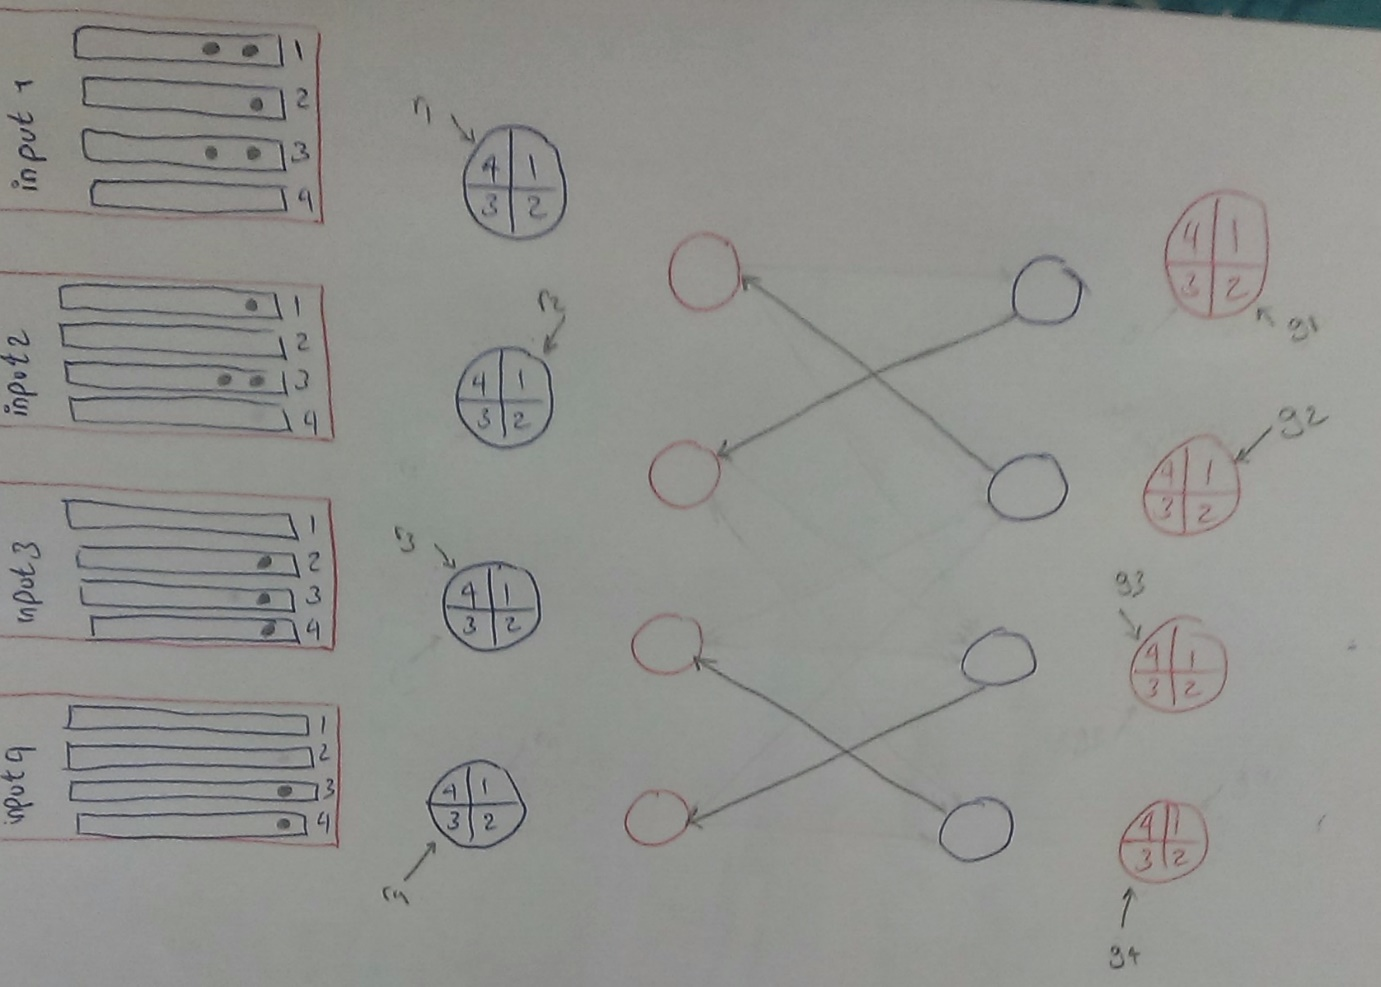 input 1
1
2
3
4
input2
1
2
3
4
input3
1
2
3
4
input4
1
2
3
4
r1
4 1
3 2
r2
4 1
3 2
r3
4 1
3 2
r4
4 1
3 2
4 1
3 2
g1
g2
4 1
3 2
g3
4 1
3 2
4 1
3 2
g4